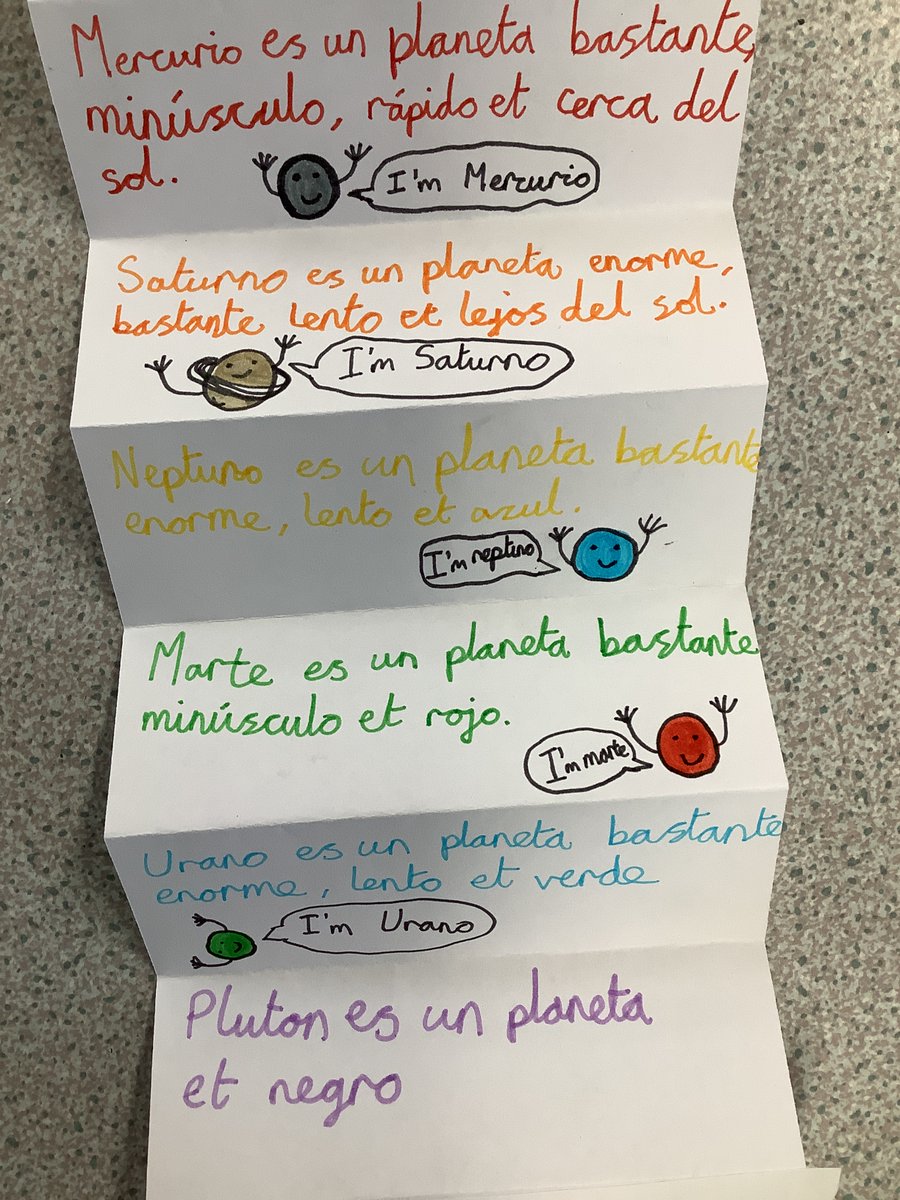 Mercurio es un planeta bastante,
minúsculo, rápido et cerca del
sol.
I'm Mercurio
Saturno es un planeta enorme,
bastante lento et lejos del sol.
I'm Saturno
Neptuno es un planeta bastante
enorme, lento et azul.
I'm neptuno
Marte es un planeta bastante
minúsculo et rojo.
I'm marte
Urano es un planeta bastante
enorme, lento et verde
I'm Urano
Pluton es un planeta
et negro